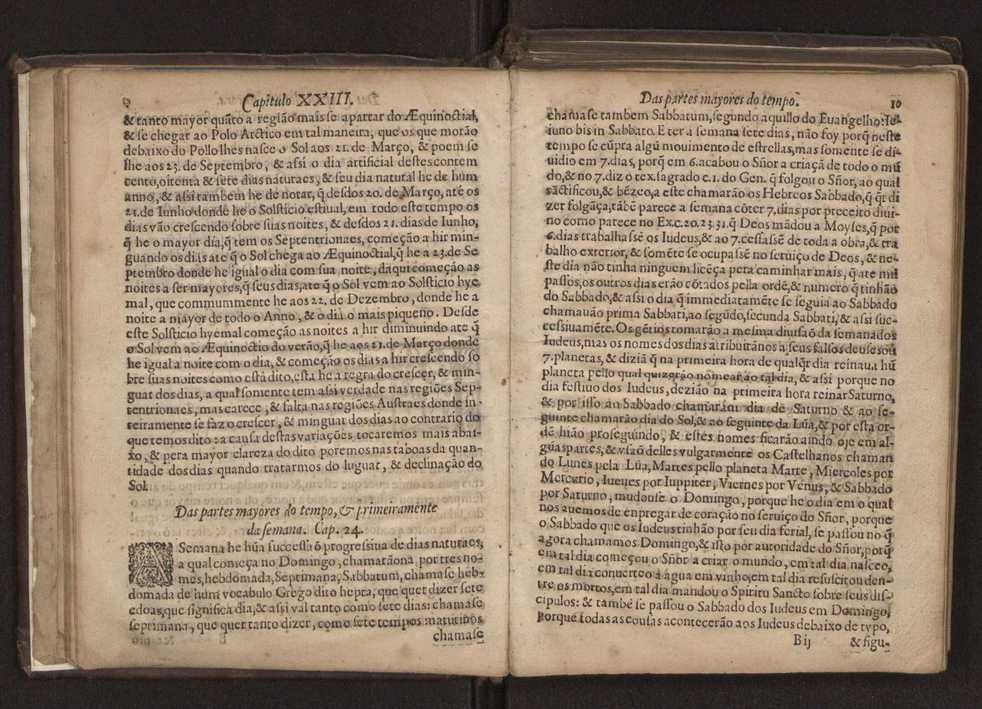 9 Capitulo XXIII.
& tanto mayor quãto a região mais se apartar do Æquinoctial,
& se chegar ao Polo Arctico em tal maneira, que os que morão
debaixo do Pollo lhes nasce o Sol aos 21. de Março, & poem se
lhe aos 23. de Septembro, & assi o dia artificial destes contem
cento, oitenta & sete dias naturaes, & seu dia natural he de hum
anno, & assi tambem he de notar, q̃ desdos 20. de Março, atè os
21. de Iunho donde he o Solsticio estiual, em todo este tempo os
dias vão crescendo sobre suas noites, & desdos 21. dias de Iunho,
q̃ he o mayor dia, q̃ tem os Septentrionaes, começão a hir min-
guando os dias ate q̃ o Sol chega ao Æquinoctial, q̃ he a 23. de Se
ptembro donde he igual o dia com sua noite, daqui começão as
noites a ser mayores, q̃ seus dias, ate q̃ o Sol vem ao Solsticio hye
mal, que commummente he aos 22. de Dezembro, donde he a
noite a mayor de todo o Anno, & o dia o mais piqueno. Desde
este Solsticio hyemal começão as noites a hir diminuindo atè q̃
o Sol vem ao Æquinoctio do verão, q̃ he aos 21. de Março donde
he igual a noite com o dia, & começão os dias a hir crescendo so
bre suas noites como està dito, esta he a regra do crescer, & min-
guar dos dias, a qual somente tem assi verdade nas regiões Sep-
tentrionaes, mas carece, & falta nas regiões Austraes donde in-
teiramente se faz o crescer, & minguar dos dias ao contrario do
que temos dito: a causa destas variações tocaremos mais abai-
xo, & pera mayor clareza do dito poremos nas taboas da quan-
tidade dos dias quando tratarmos do luguar, & declinação do
Sol.
Das partes mayores do tempo, & primeiramente
da semana. Cap. 24.
A Semana he hũa successaõ progressiua de dias naturaes,
a qual começa no Domingo, chamarãona por tres no-
mes, hebdomada, Septimana, Sabbatum, chamase heb-
domada de hum vocabulo Grego dito hepta, que quer dizer sete
edoas, que significa dia, & assi val tanto como sete dias: chamase
septimana, que quer tanto dizer, como sete tempos maturinos
chamase
Das partes mayores do tempo. 10
chamase tambem Sabbatum, segundo aquillo do Euangelho: Ie-
iuno bis in Sabbato. E ter a semana sete dias, não foy porq̃ neste
tempo se cũpra algũ mouimento de estrellas, mas somente se di-
uidio em 7. dias, porq̃ em 6. acabou o Sñor a criaçã de todo o mũ
do, & no 7. diz o tex. sagrado c. 1. do Gen. q̃ folgou o Sñor, ao qual
sãctificou, & bẽzeo, a este chamarão os Hebreos Sabbado, q̃ q̃r di
zer folgãça, tãbẽ parece a semana cõter 7. dias por preceito diui-
no como parece no Ex. c. 20. 23. 31. q̃ Deos mãdou a Moyses, q̃ por
6. dias trabalhassẽ os Iudeus, & ao 7. cessassẽ de toda a obra, & tra
balho exterior, & somẽte se ocupassẽ no seruiço de Deos, & ne-
ste dia não tinha ninguem licẽça pera caminhar mais, q̃ ate mil
passos, os outros dias erão cõtados pella ordẽ, & numero q̃ tinhão
do Sabbado, & assi o dia q̃ immediatamẽte se seguia ao Sabbado
chamauão prima Sabbati, ao segũdo, secunda Sabbati, & assi suc-
cessiuamẽte. Os gẽtios tomarão a mesma diuisaõ da semana dos
Iudeus, mas os nomes dos dias atribuirãnos a seus falsos deuses ou
7. planetas, & diziã q̃ na primeira hora de qualq̃r dia reinaua hũ
planeta pello qual quizerão nomear ão tal dia, & assi porque no
dia festiuo dos Iudeus, dezião na primeira hora reinar Saturno,
& por isso au Sabbado chamaram dia de Saturno & ao se-
guinte chamarão dia do Sol, & ao seguinte da Lũa, & por esta or-
dẽ hião proseguindo, & estes nomes ficarão aindo oje em al-
gũas partes, & vsão delles vulgarmente os Castelhanos chaman
do Lunes pela Lũa, Martes pello planeta Marte, Miercoles por
Mercurio, Iueues por Iuppiter, Viernes por Venus, & Sabbado
por Saturno, mudouse o Domingo, porque he o dia em o qual
nos auemos de empregar de coração no seruiço do Sñor, porque
o Sabbado que os Iudeus tinhão por seu dia ferial, se passou no q̃
agora chamamos Domingo, & isto por autoridade do Sñor, porq̃
em tal dia começou o Sñor a criar o mundo, em tal dia nasceo,
em tal dia conuerteo a água em vinho, em tal dia resuscitou den-
tre os mortos, em tal dia mandou o Spiritu Sancto sobre seus dis-
cipulos: & tambẽ se passou o Sabbado dos Iudeus em Domingo,
porque todas as cousas acontecerão aos Iudeus debaixo de typo,
B ij & figu-